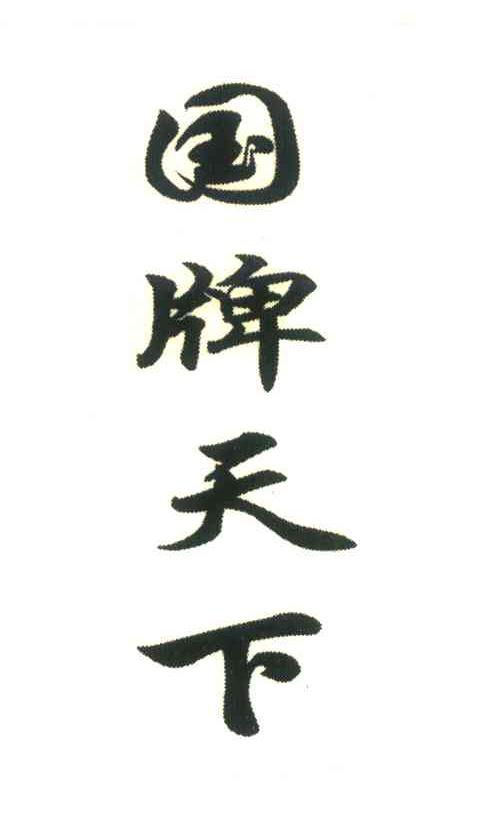 国牌天下